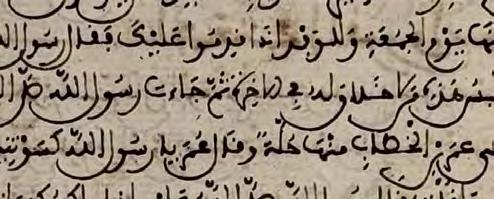 يوم الجمعة وللوفد اذا قدموا عليك فقال رسول
هذه من لا خلاق له في الاخرة ثم جاءت رسول الله صلى
عمر بن الخطاب منها حلة وقال عمر يا رسول الله كسوتنيـ
رسول الله صلى الله